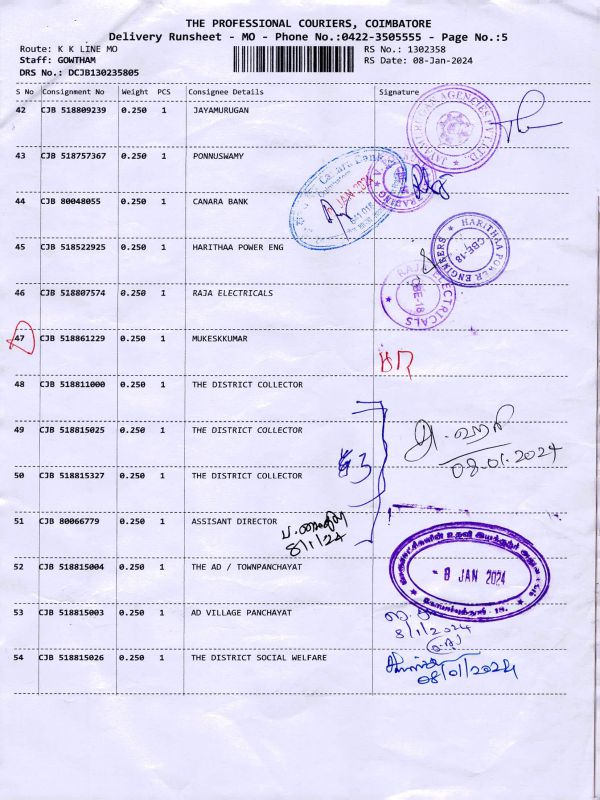 THE PROFESSIONAL COURIERS, COIMBATORE
Delivery Runsheet - MO - Phone No.:0422-3505555 - Page No.:5
Route: K K LINE MO
RS No.: 1302358
Staff: GOWTHAM
RS Date: 08-Jan-2024
DRS No.: DCJB130235805
S No Consignment No Weight PCS Consignee Details Signature
42 CJB 518809239 0.250 1 JAYAMURUGAN
43 CJB 518757367 0.250 1 PONNUSWAMY
44 CJB 80048055 0.250 1 CANARA BANK
Canara Bank
JAN 2024
45 CJB 518522925 0.250 1 HARITHAA POWER ENG
HARITHAA POWER ENGINEERS
CBE-18
46 CJB 518807574 0.250 1 RAJA ELECTRICALS
RAJA ELECTRICALS
CBE-18
47 CJB 518861229 0.250 1 MUKESKKUMAR
48 CJB 518811000 0.250 1 THE DISTRICT COLLECTOR
49 CJB 518815025 0.250 1 THE DISTRICT COLLECTOR
08.01.2024
50 CJB 518815327 0.250 1 THE DISTRICT COLLECTOR
51 CJB 80066779 0.250 1 ASSISANT DIRECTOR
8/1/24
52 CJB 518815004 0.250 1 THE AD / TOWNPANCHAYAT
- 8 JAN 2024
53 CJB 518815003 0.250 1 AD VILLAGE PANCHAYAT
8/1/2024
54 CJB 518815026 0.250 1 THE DISTRICT SOCIAL WELFARE
08/01/2024